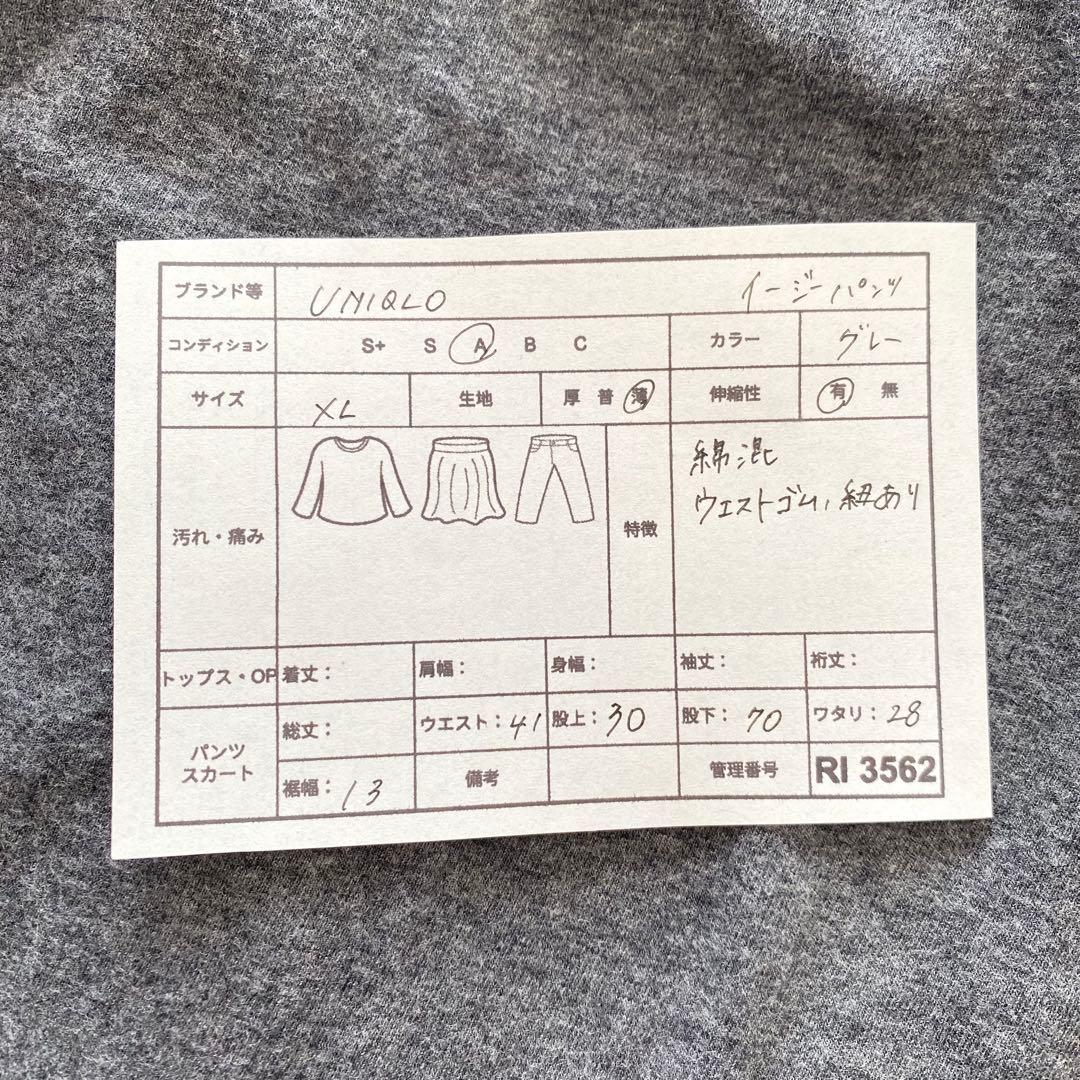 ブランド等 UNIQLO イージーパンツ
コンディション S+ S A B C カラー グレー
サイズ XL 生地 厚 普 薄 伸縮性 有 無
汚れ・痛み 特徴 綿混
ウエストゴム、紐あり
トップス・OP 着丈： 肩幅： 身幅： 袖丈： 裄丈：
パンツ スカート 総丈： ウエスト：41 股上：30 股下：70 ワタリ：28
裾幅：13 備考 管理番号 RI 3562